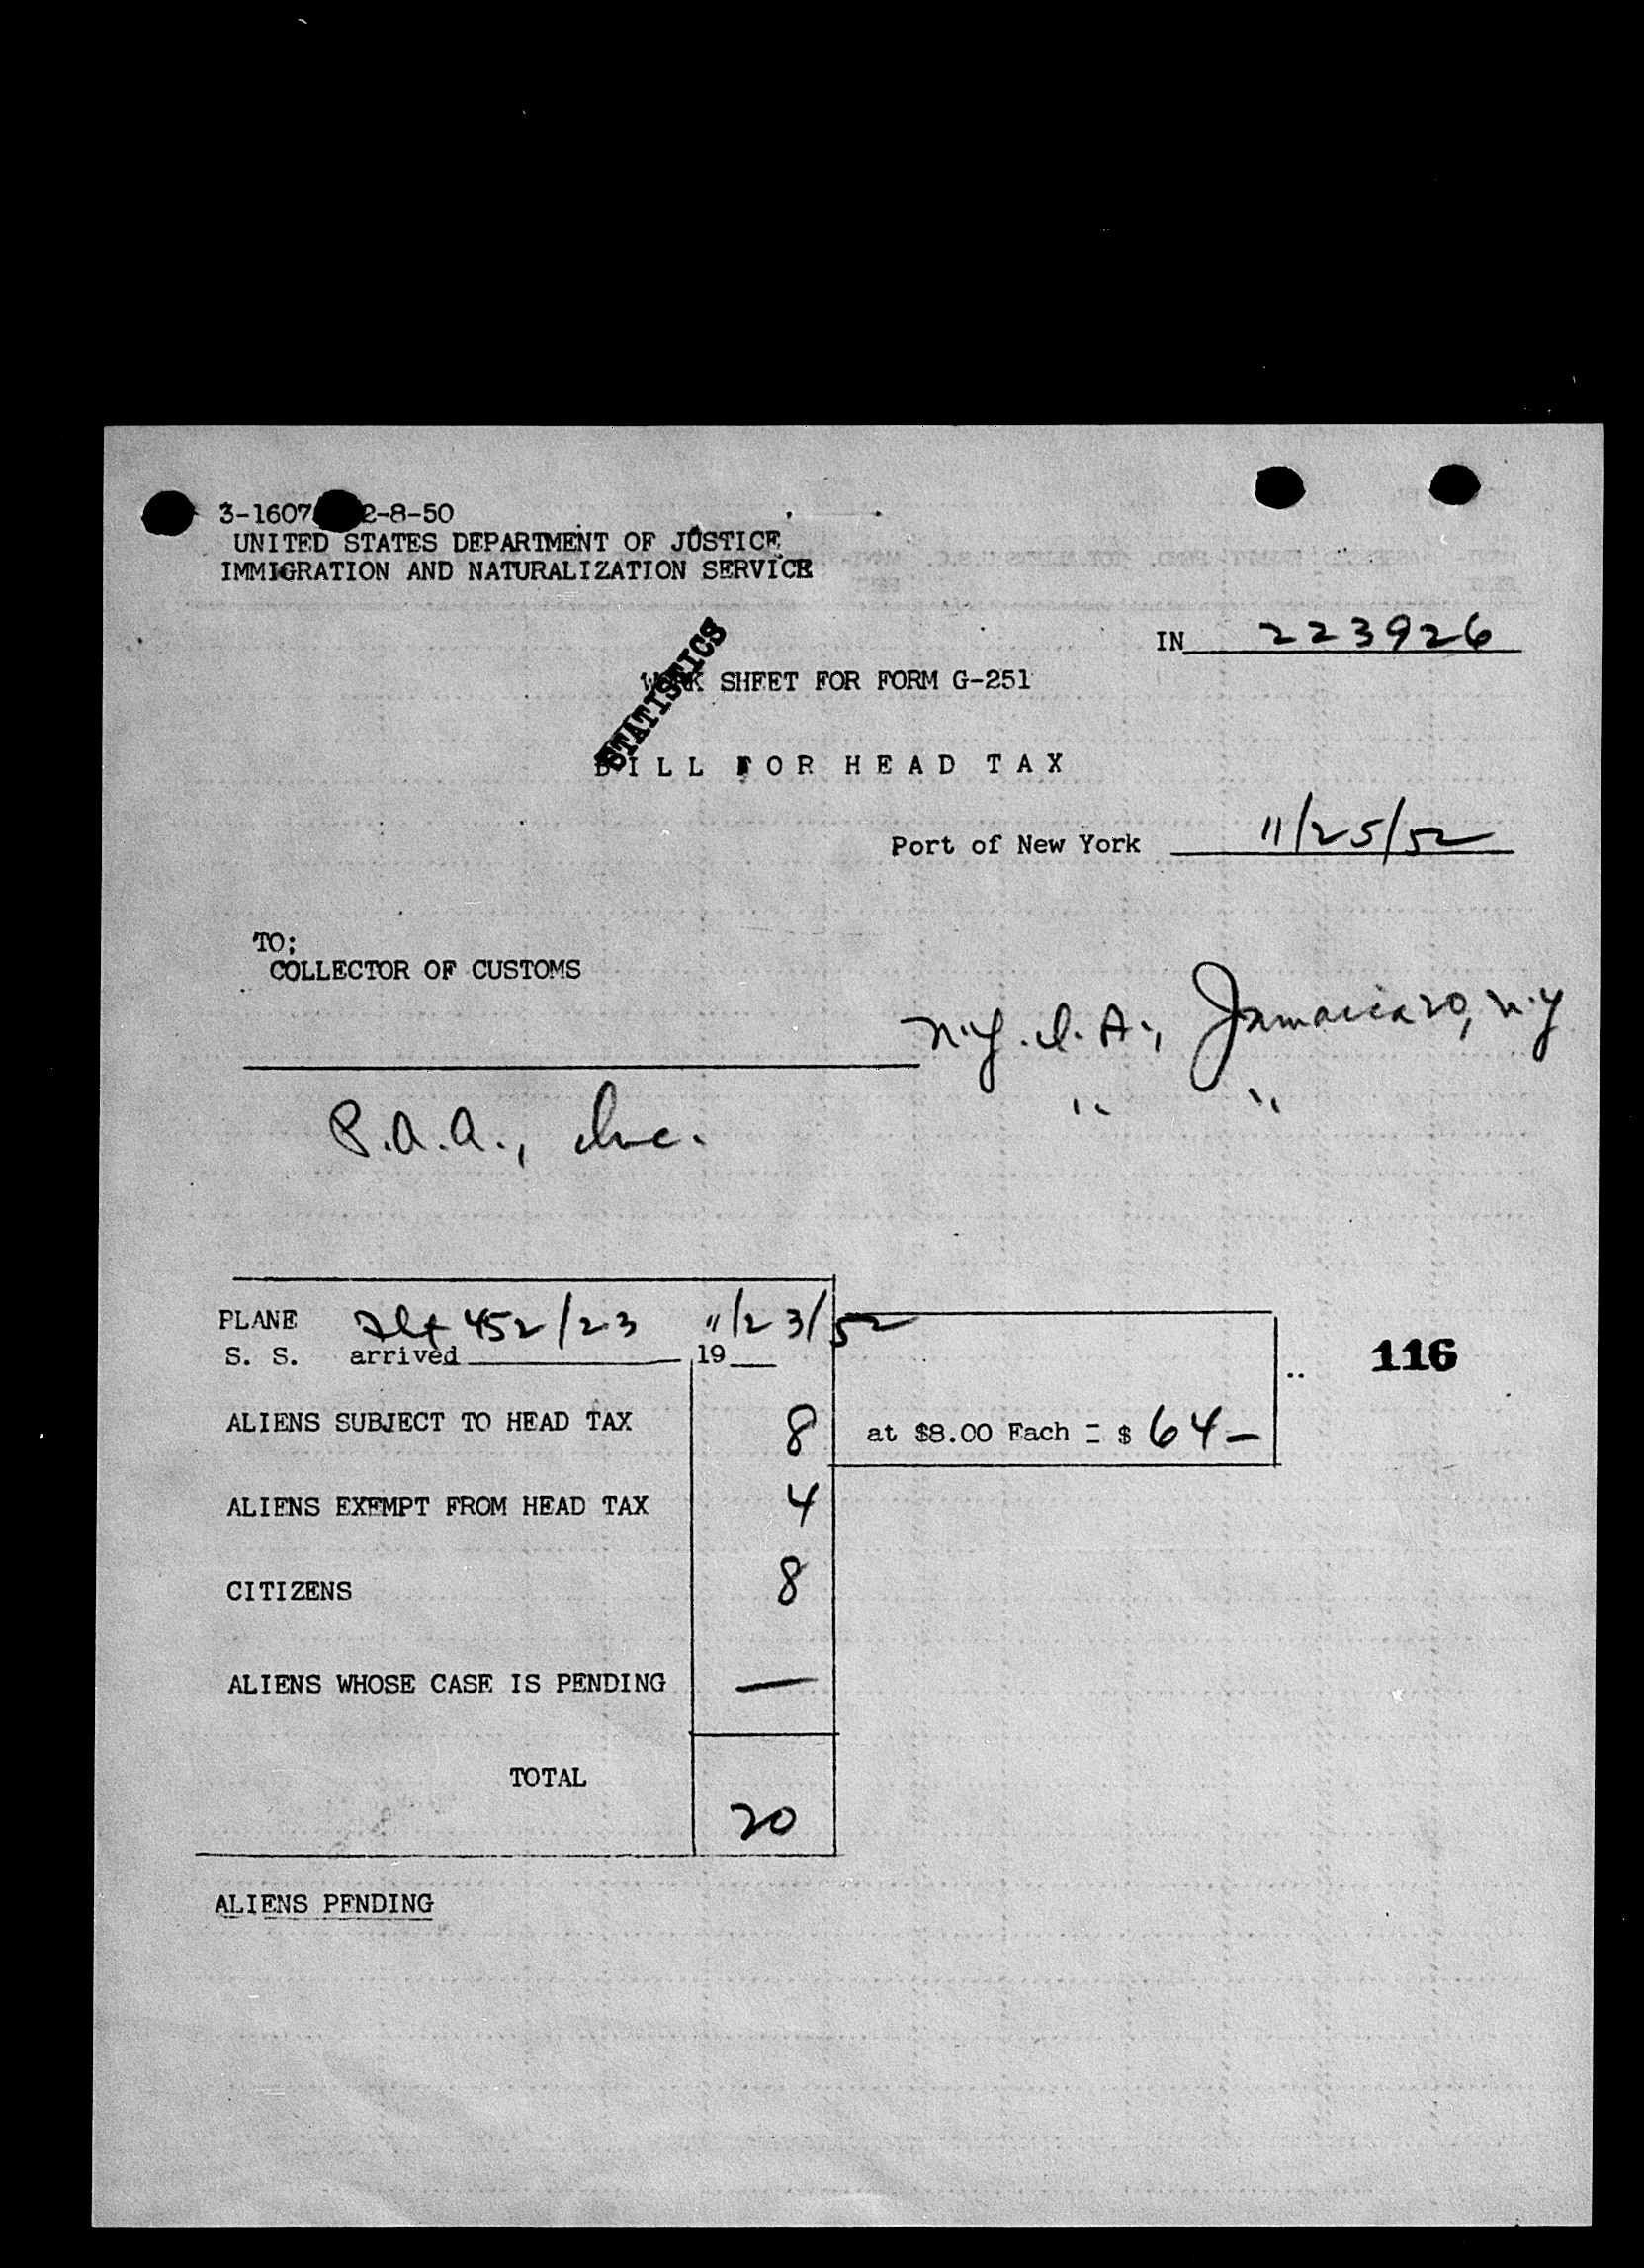 3-1607 2-8-50
UNITED STATES DEPARTMENT OF JUSTICE
IMMIGRATION AND NATURALIZATION SERVICE
IN 223926
STATISTICS
WORK SHEET FOR FORM G-251
BILL FOR HEAD TAX
Port of New York 11/25/52
TO;
COLLECTOR OF CUSTOMS
N.Y.I.A., Jamaica 20, N.Y
" "
P.A.A., Inc.
PLANE Flt 452/23 11/23/52
S. S. arrived 19
116
ALIENS SUBJECT TO HEAD TAX 8 at $8.00 Each = $ 64-
ALIENS EXEMPT FROM HEAD TAX 4
CITIZENS 8
ALIENS WHOSE CASE IS PENDING —
TOTAL
20
ALIENS PENDING